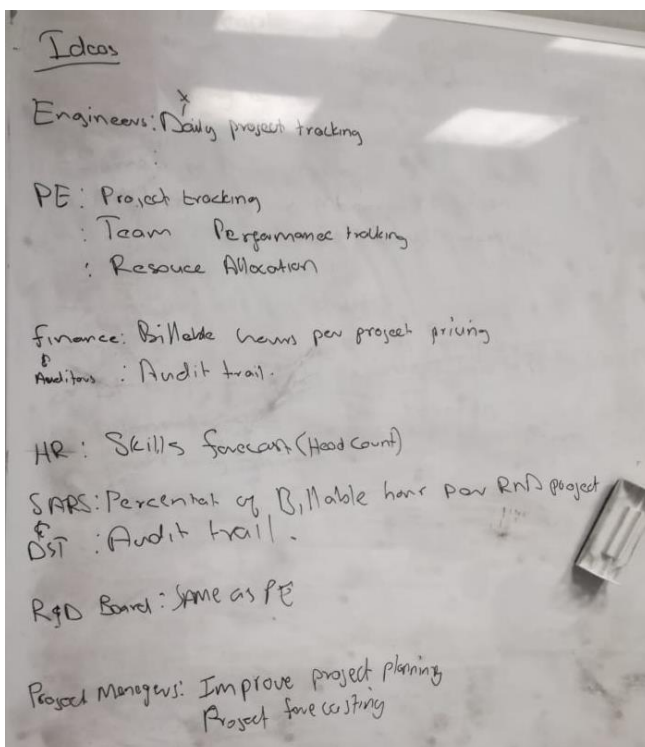 Ideas
Engineers: Daily project tracking
:
PE: Project tracking
: Team Performance tracking
: Resouce Allocation
finance: Billable hours per project pricing
&
Auditors : Audit trail.
HR: Skills forecast (Head Count)
SARS: Percentat of Billable hour per RnD project
&
DST : Audit trail.
R&D Board: Same as PE
Project Managers: Improve project planning
Project forecasting